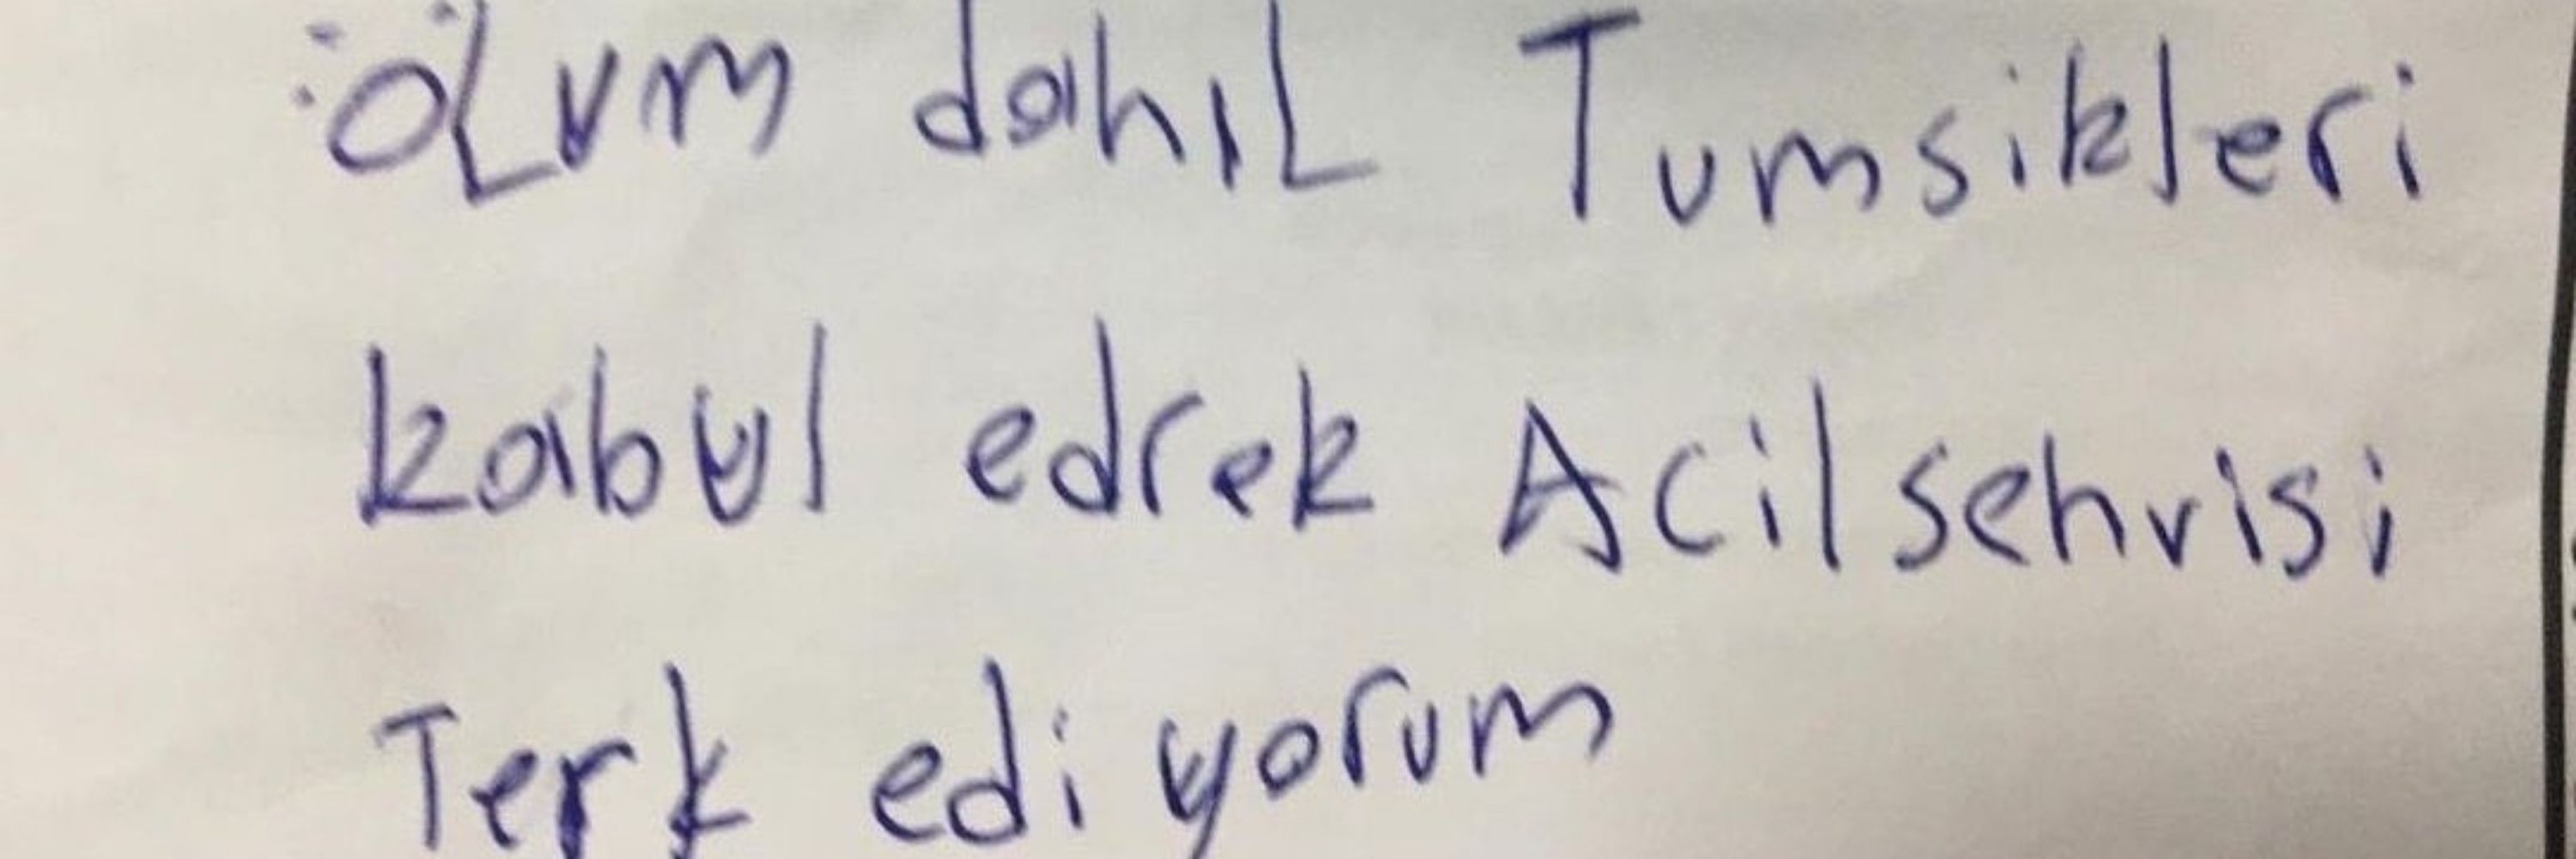 ölum dahıL Tumsikleri
kabul edrek Acil sehvisi
Terk edi yorum